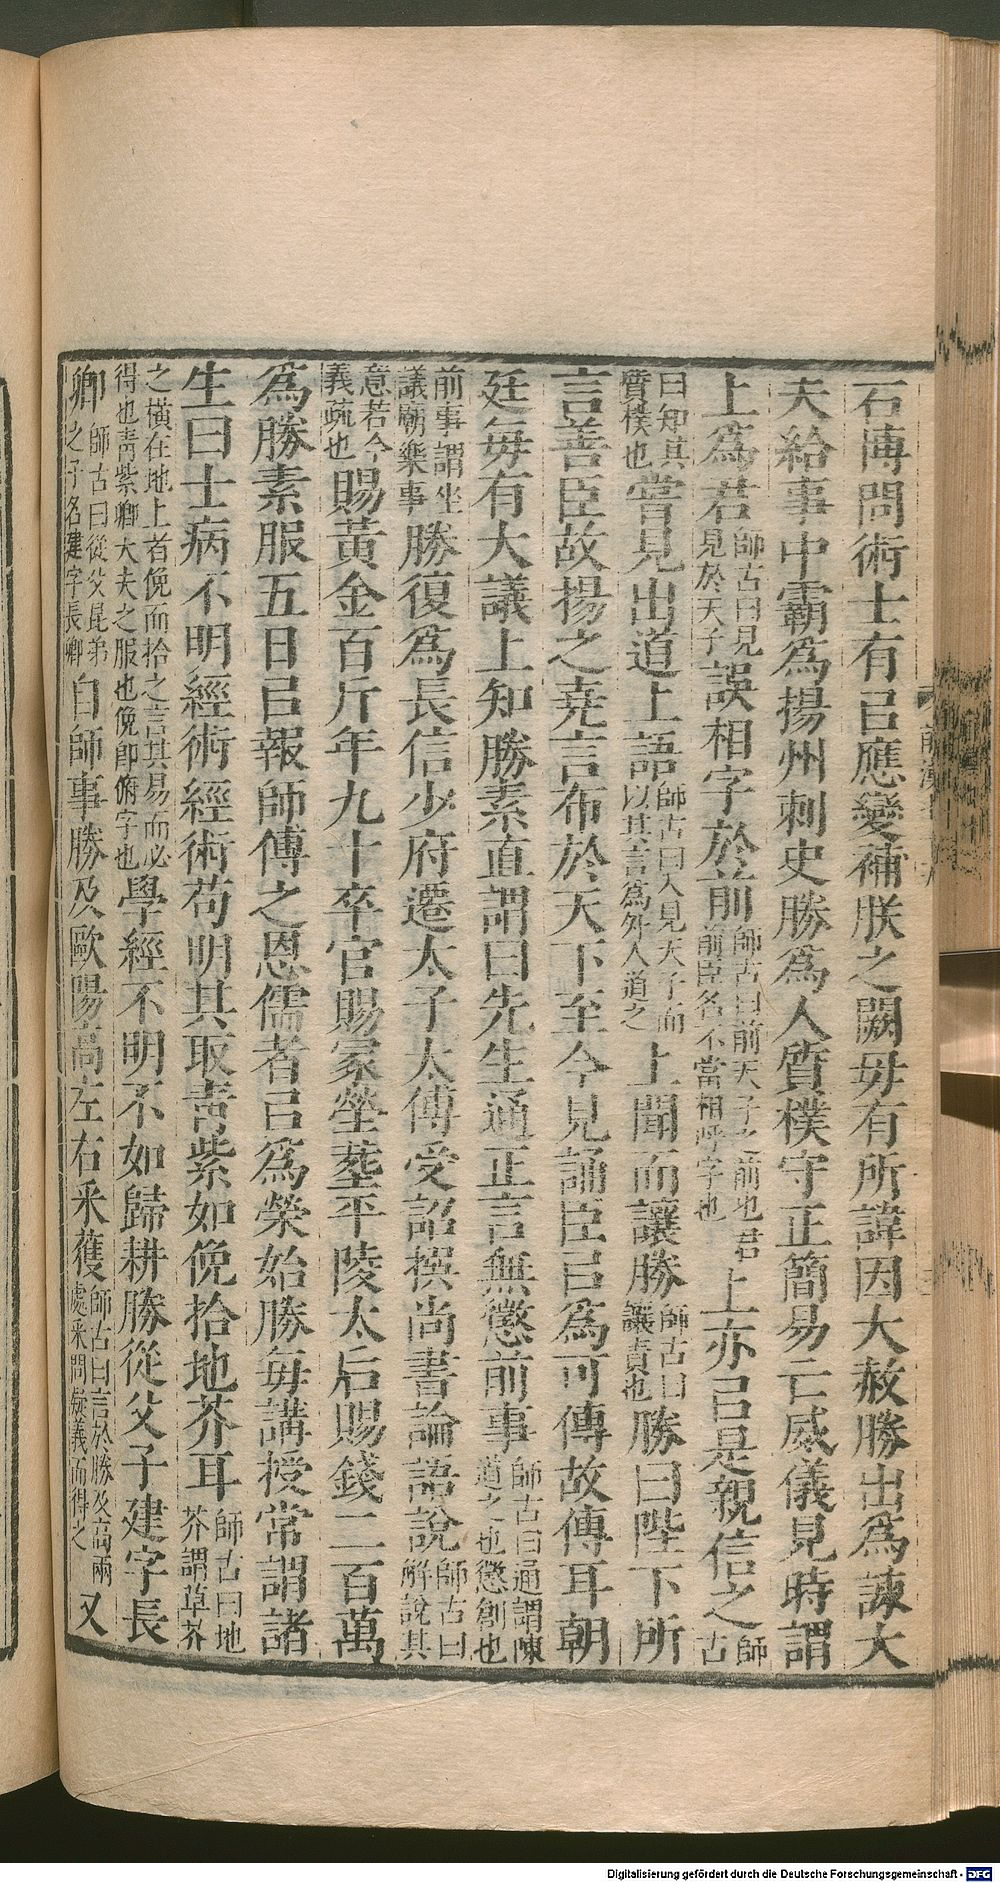 石傅問術士有㠯應變補朕之闕毋有所諱因大赦勝出爲諫大
夫給事中霸爲揚州刺史勝爲人質樸守正簡易亡威儀見時謂
上爲君師古曰見見於天子誤相字於前師古曰前天子之前也君前臣名不當相呼字也上亦㠯是親信之師古
曰知其質樸也嘗見出道上語師古曰入見天子而以其言爲外人道之上聞而讓勝師古曰讓責也勝曰陛下所
言善臣故揚之堯言布於天下至今見誦臣㠯爲可傳故傳耳朝
廷每有大議上知勝素直謂曰先生通正言無懲前事師古曰通謂陳道之也懲創也
前事謂坐議廟樂事勝復爲長信少府遷太子太傅受詔撰尚書論語說師古曰解說其
意若今義疏也賜黃金百斤年九十卒官賜冢塋葬平陵太后賜錢二百萬
爲勝素服五日㠯報師傅之恩儒者㠯爲榮始勝每講授常謂諸
生曰士病不明經術經術苟明其取青紫如俛拾地芥耳師古曰地芥謂草芥
之橫在地上者俛而拾之言其易而必得也青紫卿大夫之服也俛即俯字也學經不明不如歸耕勝從父子建字長
卿師古曰從父昆弟之子名建字長卿自師事勝及歐陽高左右采獲師古曰言於勝及高兩處采問疑義而得之又
前漢
Digitalisierung gefördert durch die Deutsche Forschungsgemeinschaft - DFG